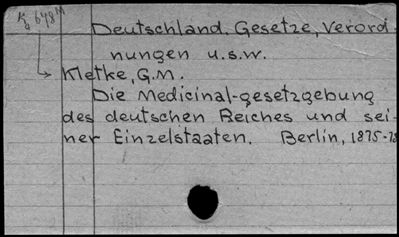 Kz 678 M
Deutschland. Gesetze, Verord-
nungen u.s.w.
Kletke, G.M.
Die Medicinal-gesetzgebung
des deutschen Reiches und sei-
ner Einzelstaaten. Berlin, 1875-78